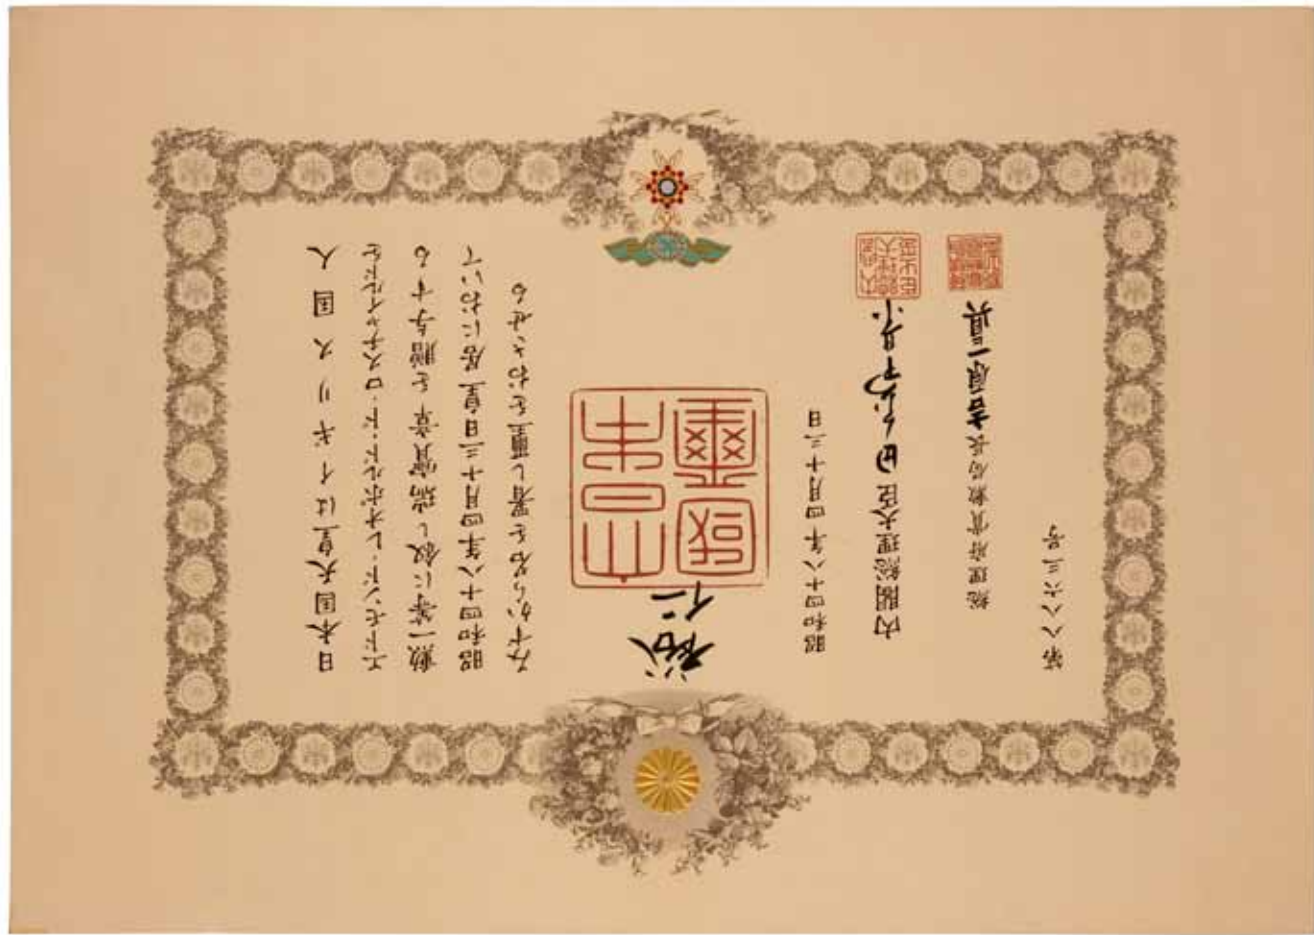 日本国天皇はイギリス国人
エドモンド・レオポルド・ド・ロスチャイルドを
勲一等に叙し瑞寶章を贈与する
昭和四十八年四月十三日皇居において
みずから名を署し璽をおさせる
裕仁
天皇御璽
昭和四十八年四月十三日
内閣総理大臣田中角榮
総理府賞勲局長吉原一眞
第八八六三号